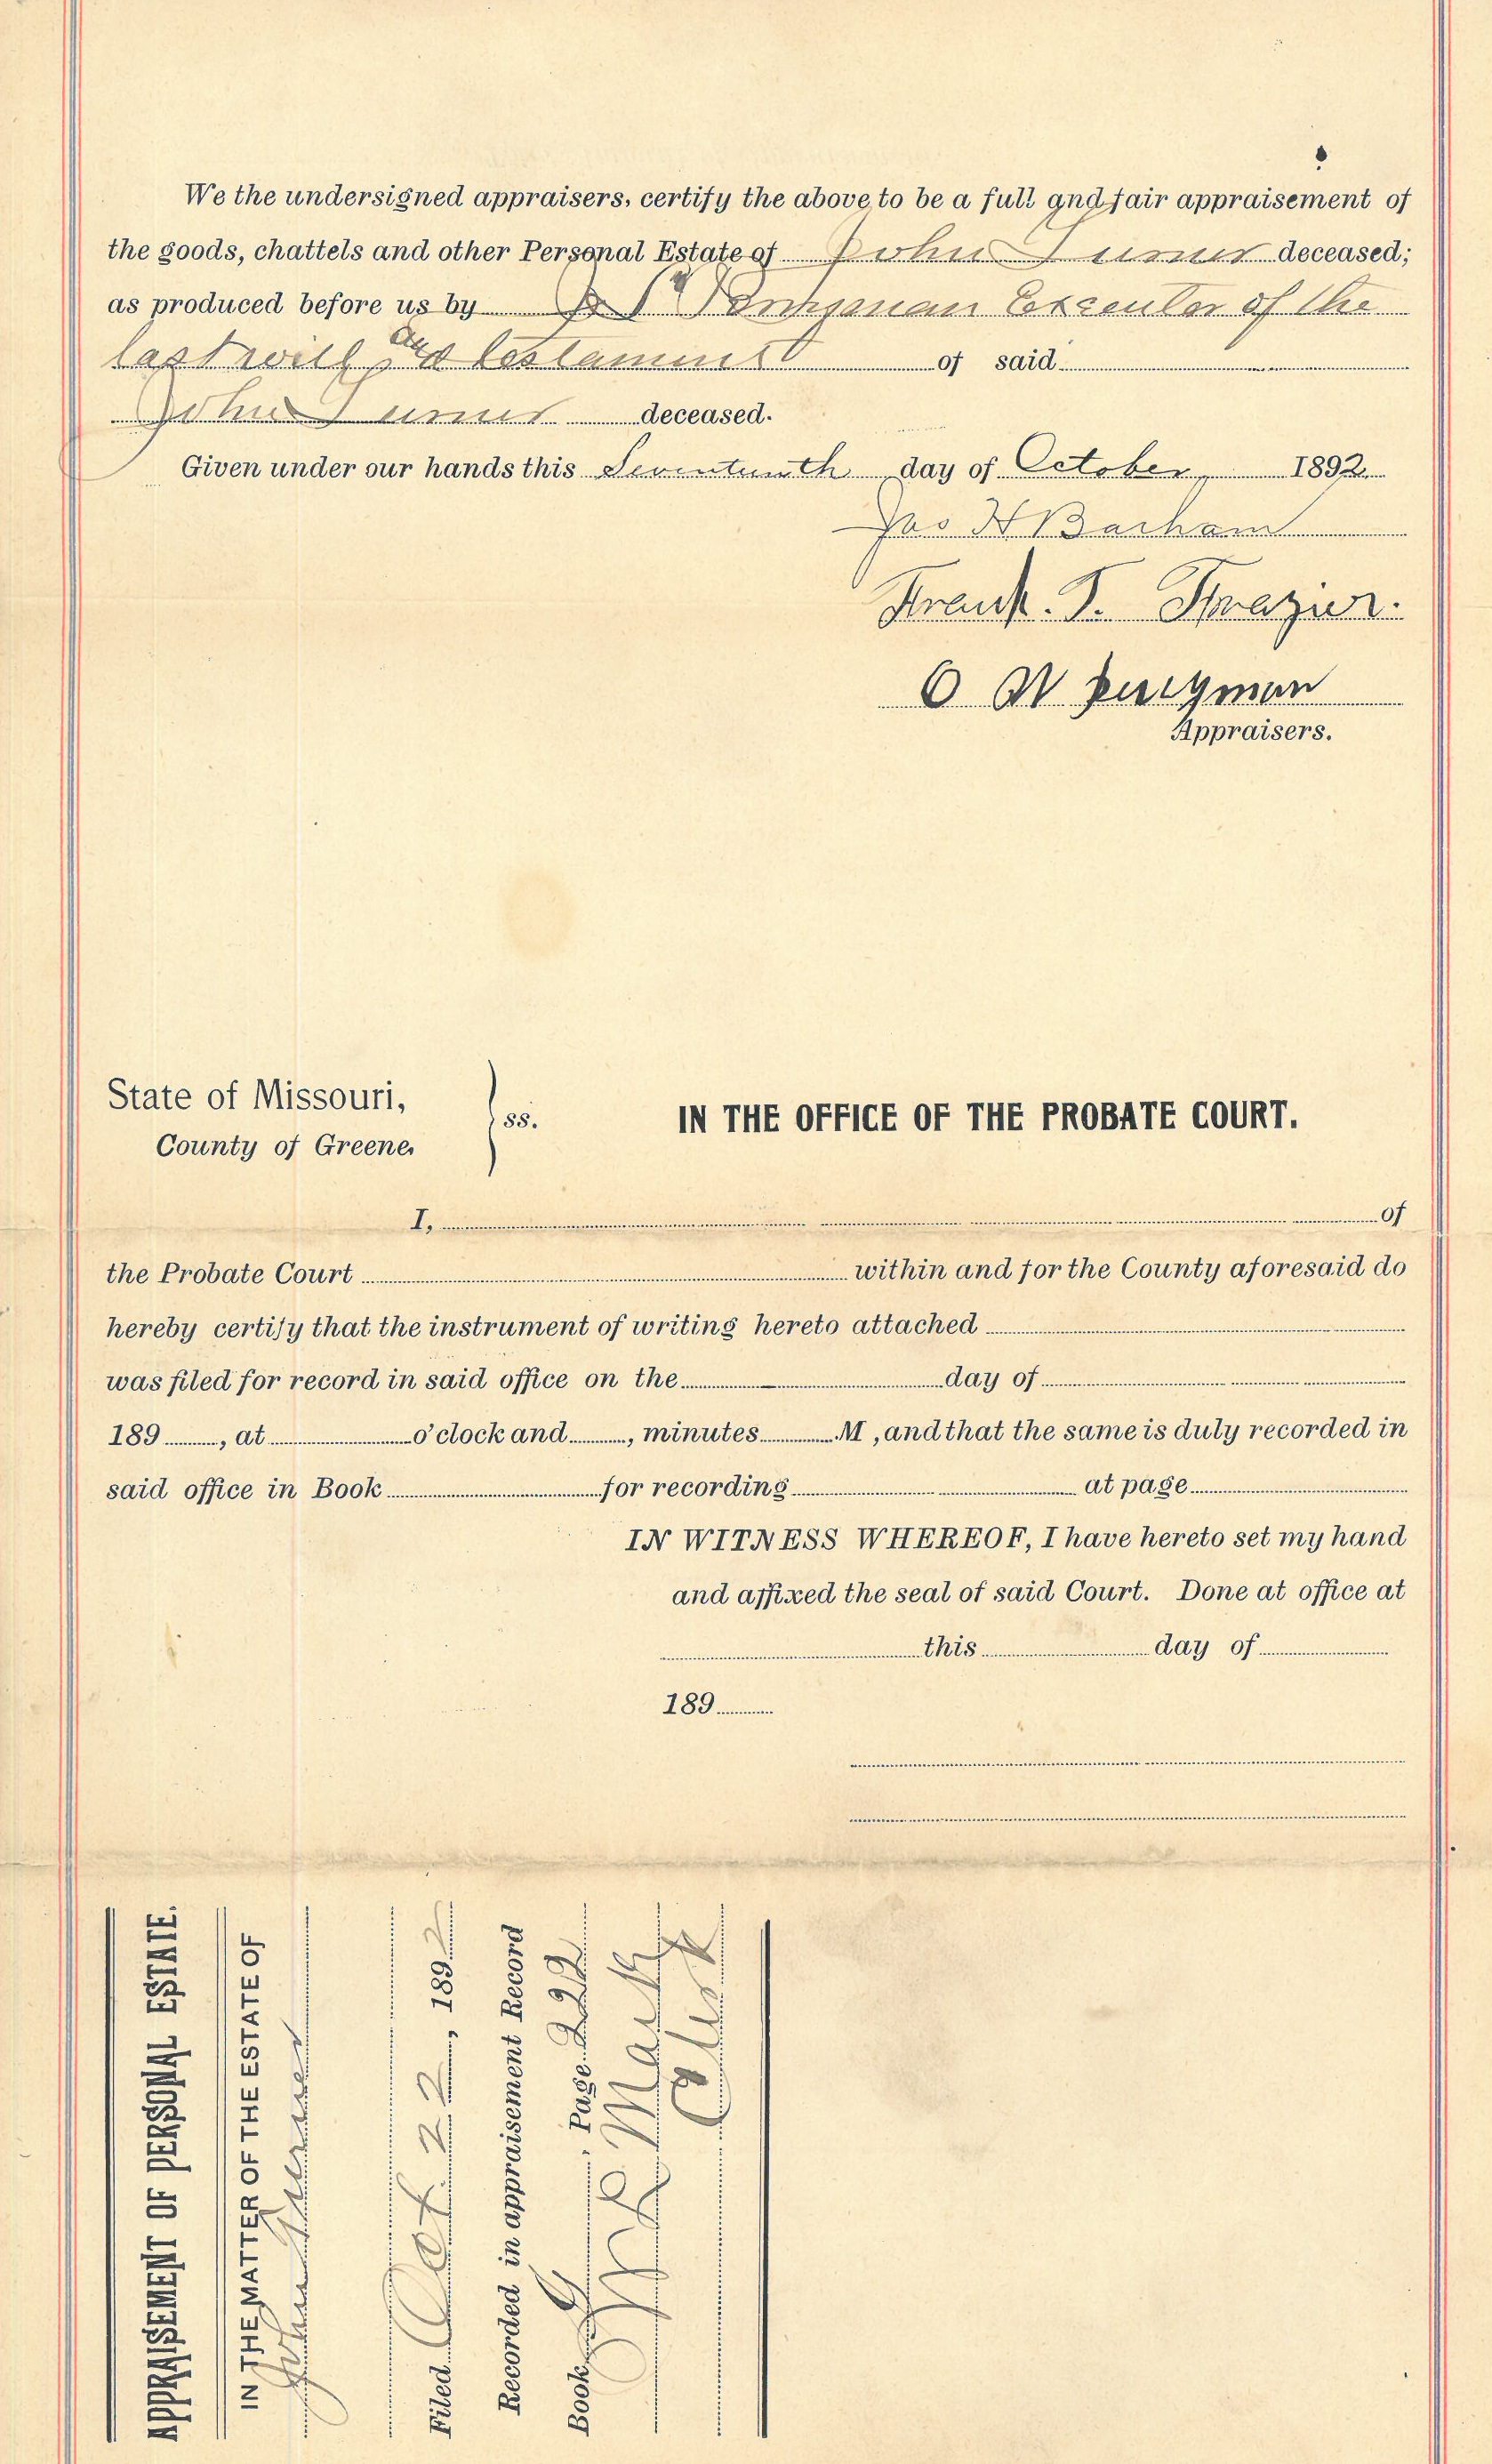 We the undersigned appraisers, certify the above to be a full and fair appraisement of
the goods, chattels and other Personal Estate of John Turner deceased;
as produced before us by Executor of the
last will and testament of said
John Turner deceased.
Given under our hands this Seventeenth day of October 1892
Jas H Barham
Frank. T. Frazier.
O W
Appraisers.
State of Missouri,
County of Greene,
ss.
IN THE OFFICE OF THE PROBATE COURT.
I, of
the Probate Court within and for the County aforesaid do
hereby certify that the instrument of writing hereto attached
was filed for record in said office on the day of
189 , at o'clock and , minutes M , and that the same is duly recorded in
said office in Book for recording at page
IN WITNESS WHEREOF, I have hereto set my hand
and affixed the seal of said Court. Done at office at
this day of
189
APPRAISEMENT OF PERSONAL ESTATE.
IN THE MATTER OF THE ESTATE OF
John Turner
Filed Oct 22 , 1892
Recorded in appraisement Record
Book G , Page 222
Clerk